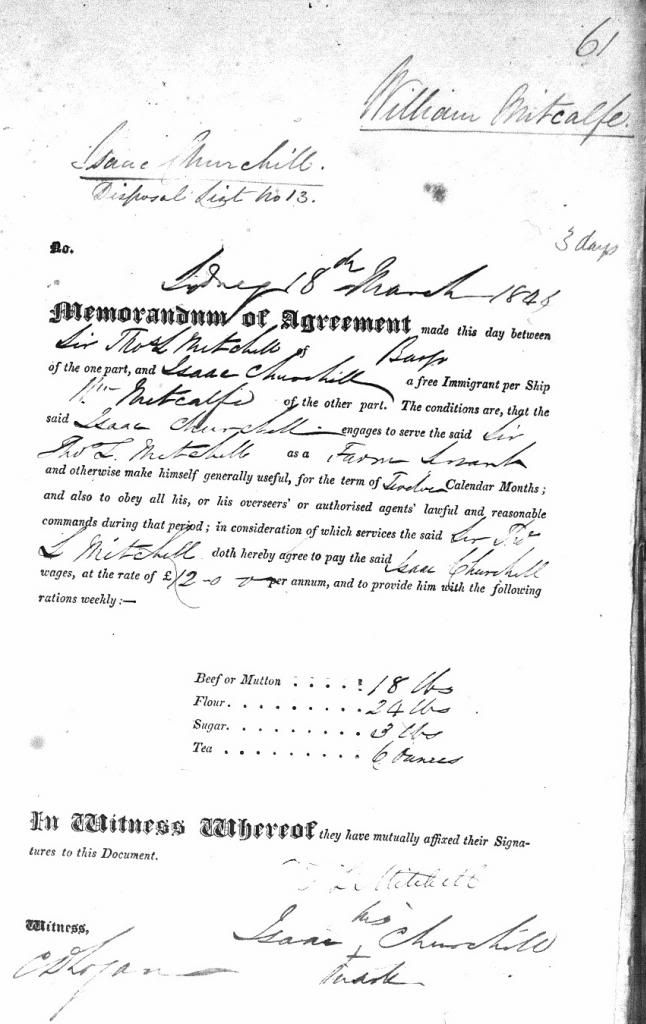 61
William Mitcalfe.
Isaac Churchill.
Disposal List No 13.
3 days
No.
Sydney 18th March 184
Memorandum of Agreement made this day between
Sir Thos L Mitchell of
of the one part, and Isaac Churchill a free Immigrant per Ship
Wm Metcalfe of the other part. The conditions are, that the
said Isaac Churchill engages to serve the said Sir
Thos L. Mitchell as a Farm Servant
and otherwise make himself generally useful, for the term of Twelve Calendar Months;
and also to obey all his, or his overseers' or authorised agents' lawful and reasonable
commands during that period; in consideration of which services the said Sir Thos
L Mitchell doth hereby agree to pay the said Isaac Churchill
wages, at the rate of £12-0-0 per annum, and to provide him with the following
rations weekly:—
Beef or Mutton . . . . : 18 lbs
Flour. . . . . . . . . 24 lbs
Sugar. . . . . . . . . 3 lbs
Tea . . . . . . . . . 6 ounces
In Witness Whereof they have mutually affixed their Signa-
tures to this Document.
T L Mitchell
Witness,
his
Isaac + Churchill
mark